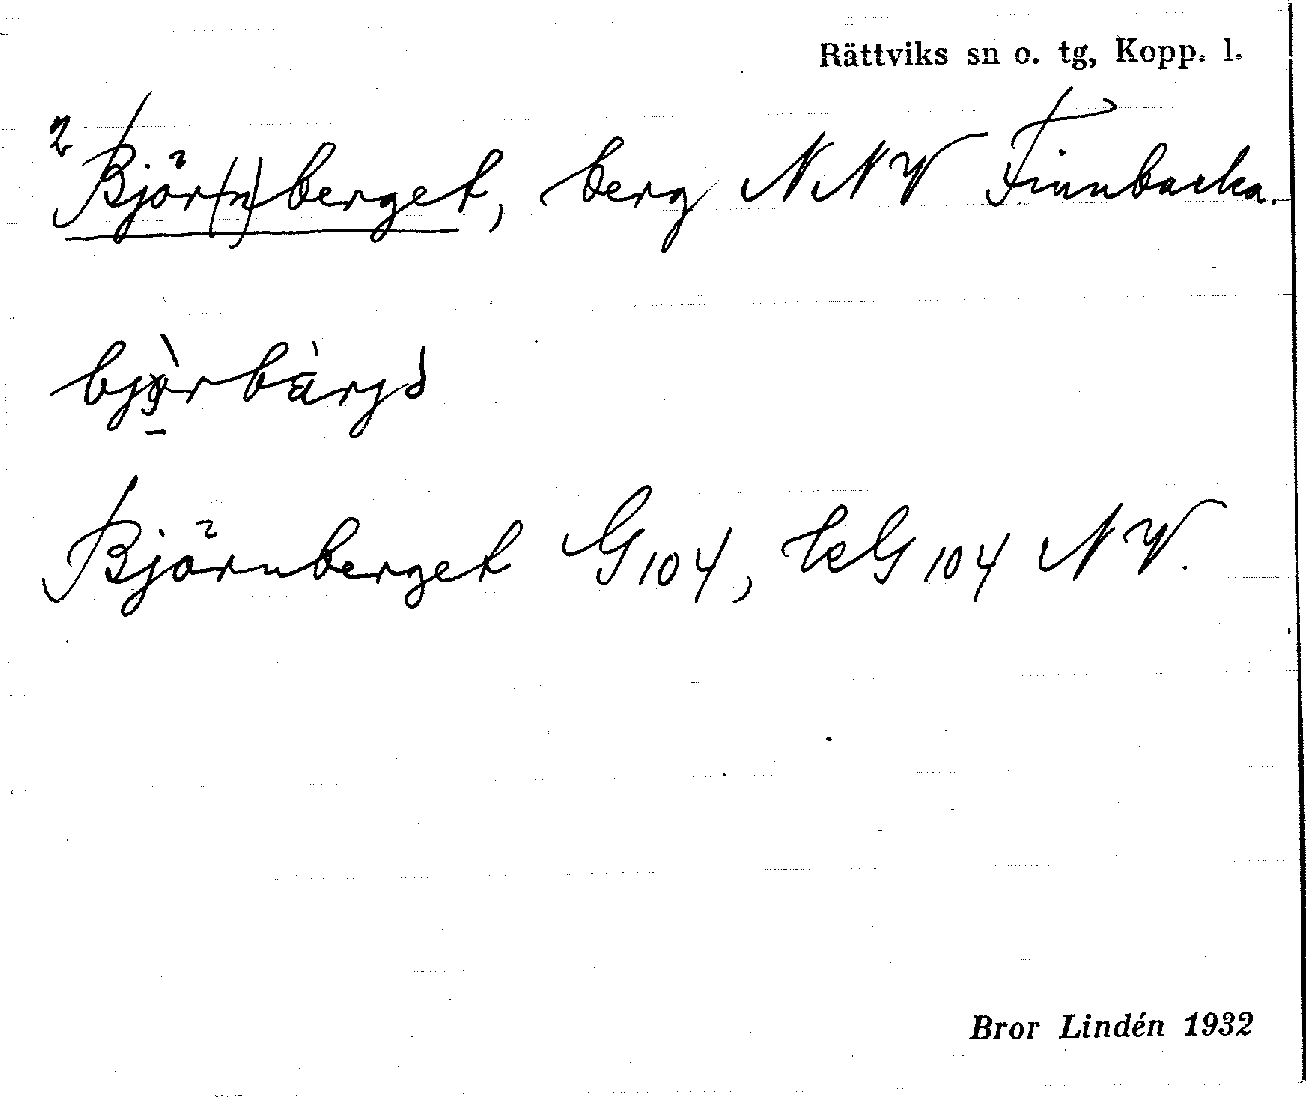 Rättviks sn o. tg, Kopp. l.
2 Björ(n)berget, berg NNV Finnbacka.
bjö̀rbàrjə
Björnberget G 104, EkG 104 NV.
Bror Lindén 1932